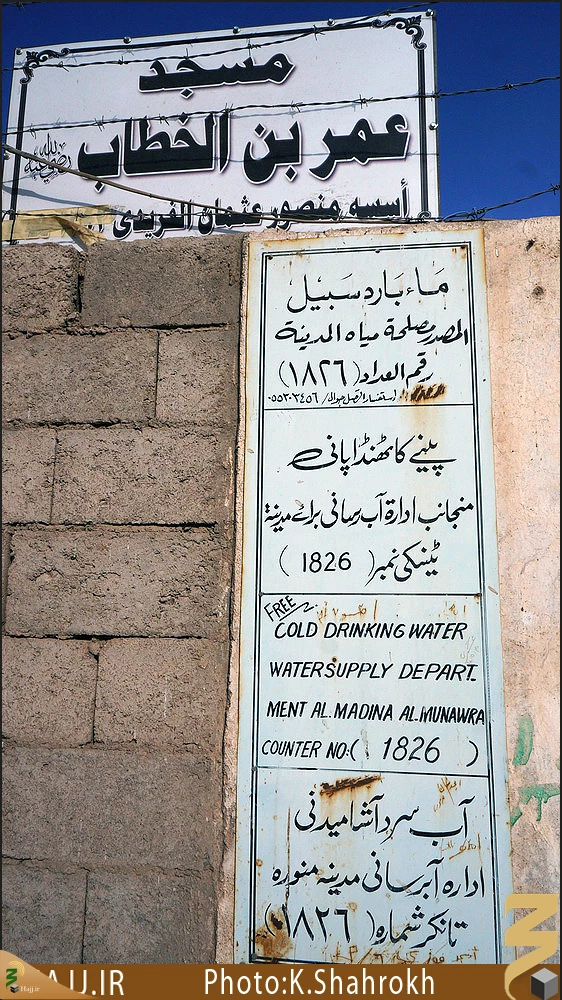 مسجد
عمر بن الخطاب
رضي الله عنه
أسسه منصور عثمان الفريدي
ماء بارد سبيل
المصدر مصلحة مياه المدينة
رقم العداد (١٨٢٦)
پینے کا ٹھنڈا پانی
منجانب ادارۃ آب رسانی برائے مدینۃ
ٹینکی نمبر ( 1826 )
FREE
COLD DRINKING WATER
WATERSUPPLY DEPART.
MENT AL.MADINA AL.MUNAWRA
COUNTER NO:( 1826 )
آب سرد آشامیدنی
اداره آبرسانی مدینه منوره
تانکر شماره (١٨٢٦)
HAJJ.IR
Photo:K.Shahrokh
Hajj.ir